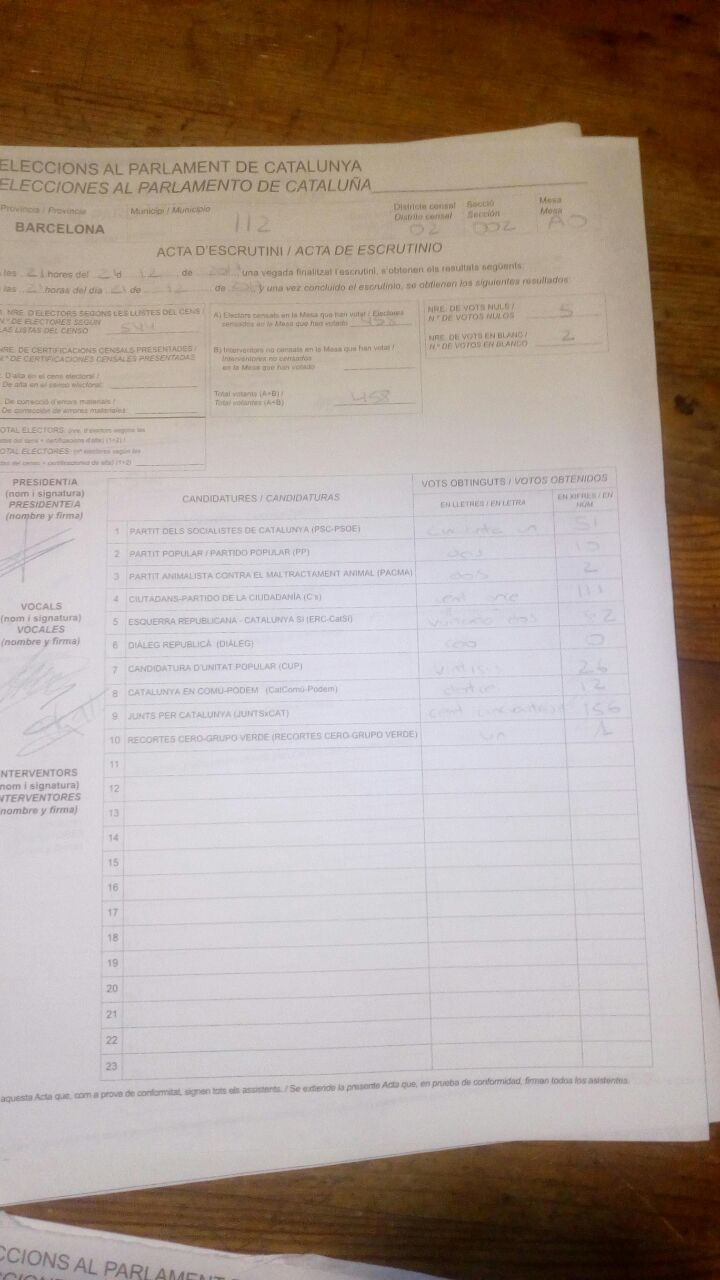 ELECCIONS AL PARLAMENT DE CATALUNYA
ELECCIONES AL PARLAMENTO DE CATALUÑA
Provincia / Provincia
Municipi / Municipio
Districte censal
Distrito censal
Secció
Sección
Mesa
Mesa
BARCELONA
112
02
002
A0
ACTA D'ESCRUTINI / ACTA DE ESCRUTINIO
les 21 hores del 21 d 12 de una vegada finalitzat l'escrutini, s'obtenen els resultats següents:
las 21 horas del día 21 de 12 de y una vez concluido el escrutinio, se obtienen los siguientes resultados:
NRE. D'ELECTORS SEGONS LES LLISTES DEL CENS /
N.º DE ELECTORES SEGÚN
LAS LISTAS DEL CENSO
NRE. DE CERTIFICACIONS CENSALS PRESENTADES /
N.º DE CERTIFICACIONES CENSALES PRESENTADAS
D'alta en el cens electoral /
De alta en el censo electoral:
De correcció d'errors materials /
De corrección de errores materiales:
TOTAL ELECTORS: (nre. d'electors segons les
llistes del cens + certificacions d'alta) (1+2) /
TOTAL ELECTORES: (nº electores según las
listas del censo + certificaciones de alta) (1+2)
A) Electors censats en la Mesa que han votat / Electores
censados en la Mesa que han votado 458
B) Interventors no censats en la Mesa que han votat /
Interventores no censados
en la Mesa que han votado
Total votants (A+B) /
Total votantes (A+B) 458
NRE. DE VOTS NULS /
N.º DE VOTOS NULOS 5
NRE. DE VOTS EN BLANC /
N.º DE VOTOS EN BLANCO 2
PRESIDENT/A
(nom i signatura)
PRESIDENTE/A
(nombre y firma)
VOCALS
(nom i signatura)
VOCALES
(nombre y firma)
INTERVENTORS
(nom i signatura)
INTERVENTORES
(nombre y firma)
CANDIDATURES / CANDIDATURAS
VOTS OBTINGUTS / VOTOS OBTENIDOS
EN LLETRES / EN LETRA
EN XIFRES / EN NÚM.
1 PARTIT DELS SOCIALISTES DE CATALUNYA (PSC-PSOE) cinquanta un 51
2 PARTIT POPULAR / PARTIDO POPULAR (PP) deu 10
3 PARTIT ANIMALISTA CONTRA EL MALTRACTAMENT ANIMAL (PACMA) dos 2
4 CIUTADANS-PARTIDO DE LA CIUDADANÍA (C's) cent onze 111
5 ESQUERRA REPUBLICANA - CATALUNYA SÍ (ERC-CatSí) vuitanta dos 82
6 DIÀLEG REPUBLICÀ (DIÀLEG) zero 0
7 CANDIDATURA D'UNITAT POPULAR (CUP) vintisis 26
8 CATALUNYA EN COMÚ-PODEM (CatComú-Podem) dotze 12
9 JUNTS PER CATALUNYA (JUNTSxCAT) cent 156
10 RECORTES CERO-GRUPO VERDE (RECORTES CERO-GRUPO VERDE) un 1
11
12
13
14
15
16
17
18
19
20
21
22
23
aquesta Acta que, com a prova de conformitat, signen tots els assistents. / Se extiende la presente Acta que, en prueba de conformidad, firman todos los asistentes.
CCIONS AL PARLAMENT